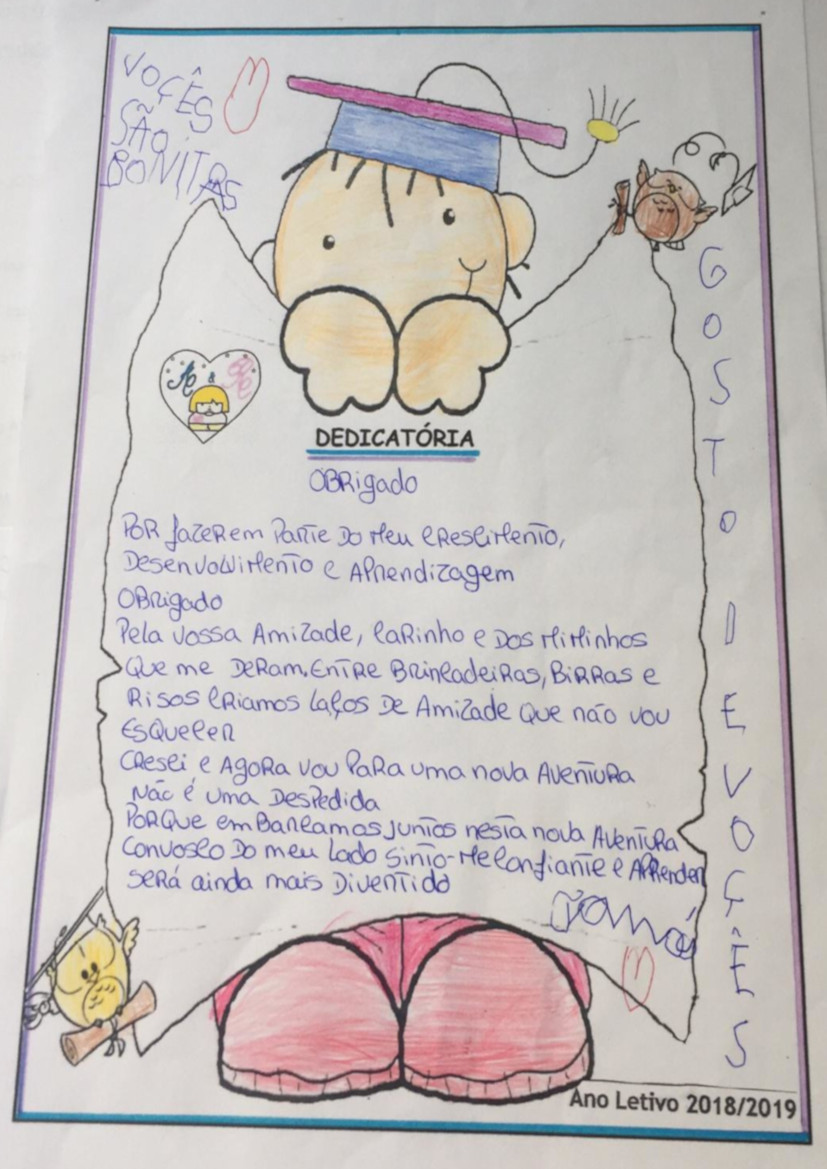 VOÇÊS
SÃO
BONITAS
DEDICATÓRIA
OBRigado
POR fazerem Parte Do Meu CRescimento,
Desenvolvimento e Aprendizagem
OBRigado
Pela vossa Amizade, CaRinho e Dos Miminhos
Que me DeRam. EntRe BRincadeiRas, BiRRas e
Risos CRiamos Laços De Amizade Que não vou
Esquecer
CResci e AgoRa vou PaRa uma nova AventuRa
Não é uma Despedida
PoRQue emBarcamos juntos nesta nova AventuRa
Convosco Do meu Lado Sinto-Me Confiante e APRender
SeRá ainda mais DiveRtido
GOSTO DE VOÇÊS
Ano Letivo 2018/2019